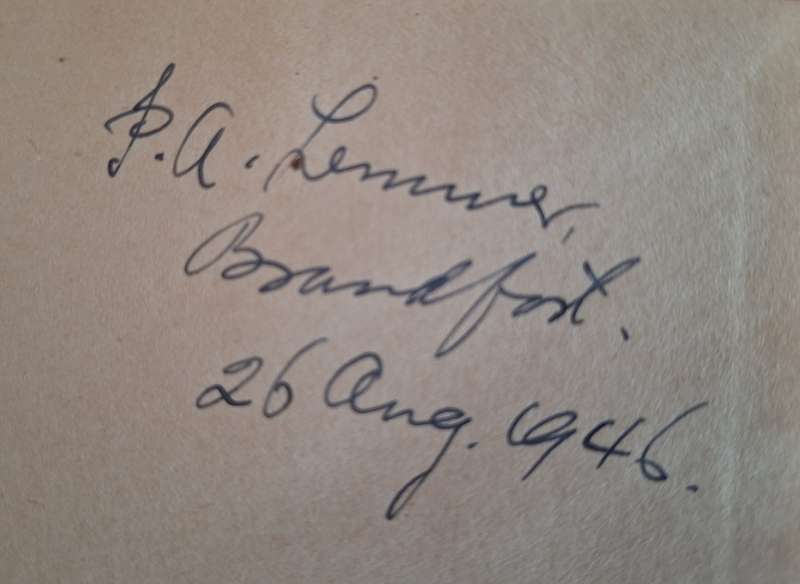 P. A. Lemmer,
Brandfort.
26 Aug. 1946.